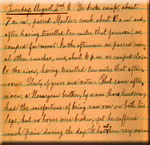 Tuesday August 2nd. We broke camp, about
7 a.m., passed Martin's ranch about 10 a.m. and,
after having travelled ten miles that forenoon, we
camped for noon. In the afternoon we passed some
at other ranches, and about 6 p.m. we camped close
to the river, having travelled ten miles that after-
noon. Plenty of grass and water. That same after-
noon, a Norwegian brother, by name
had the misfortune of being run over on both his
legs, but no bones were broken, yet he suffered
much pain during the day. It had been very warm